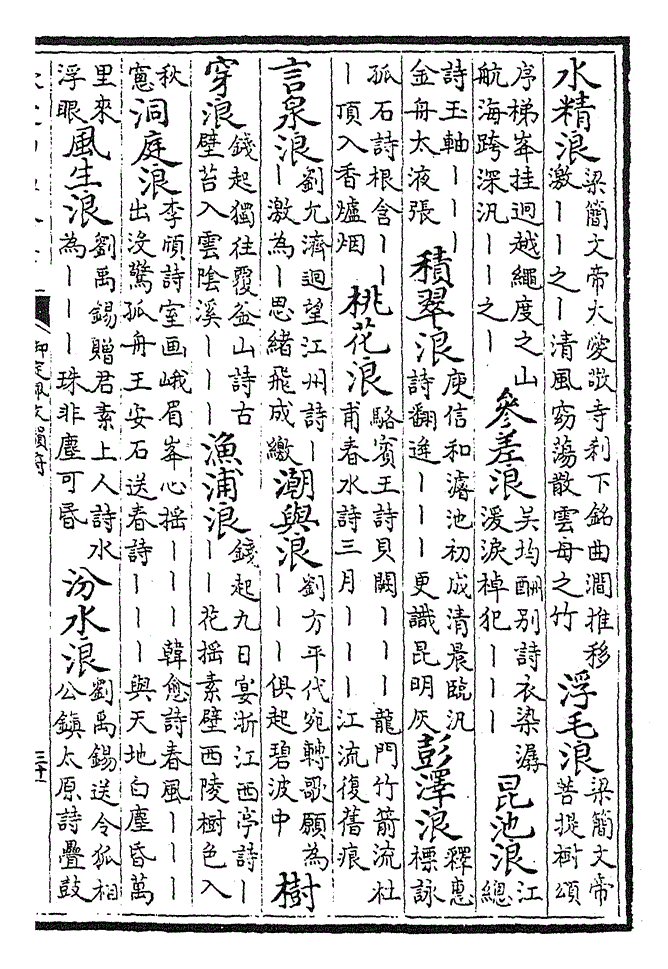 水精浪梁簡文帝大愛敬寺刹下銘曲澗推移激丨丨之丨清風窈蕩散雲母之竹浮毛浪梁簡文帝菩提樹頌
序梯峯挂迥越繩度之山航海跨深汎丨丨之丨參差浪吳均酬别詩衣染潺湲淚棹犯丨丨丨昆池浪江總
詩玉軸丨丨丨金舟太液張積翠浪庾信和濬池初成清晨臨汎詩翻逄丨丨丨更識昆明灰彭澤浪釋惠標詠
孤石詩根含丨丨丨頂入香爐烟桃花浪駱賓王詩貝闕丨丨丨龍門竹箭流杜甫春水詩三月丨丨丨江流復舊痕
言泉浪劉允濟迥望江州詩丨丨激為丨思緒飛成繳潮與浪劉方平代宛轉歌願為丨丨丨俱起碧波中樹
穿浪錢起獨往覆釜山詩古壁苔入雲陰溪丨丨丨漁浦浪錢起九日宴浙江西亭詩丨丨丨花揺素壁西陵樹色入
秋窻洞庭浪李頎詩室画峨眉峯心揺丨丨丨韓愈詩春風丨丨丨出没驚孤舟王安石送春詩丨丨丨與天地白塵昏萬
里來浮眼風生浪劉禹錫贈君素上人詩水為丨丨丨珠非塵可昏汾水浪劉禹錫送令狐相公鎮太原詩疊鼓